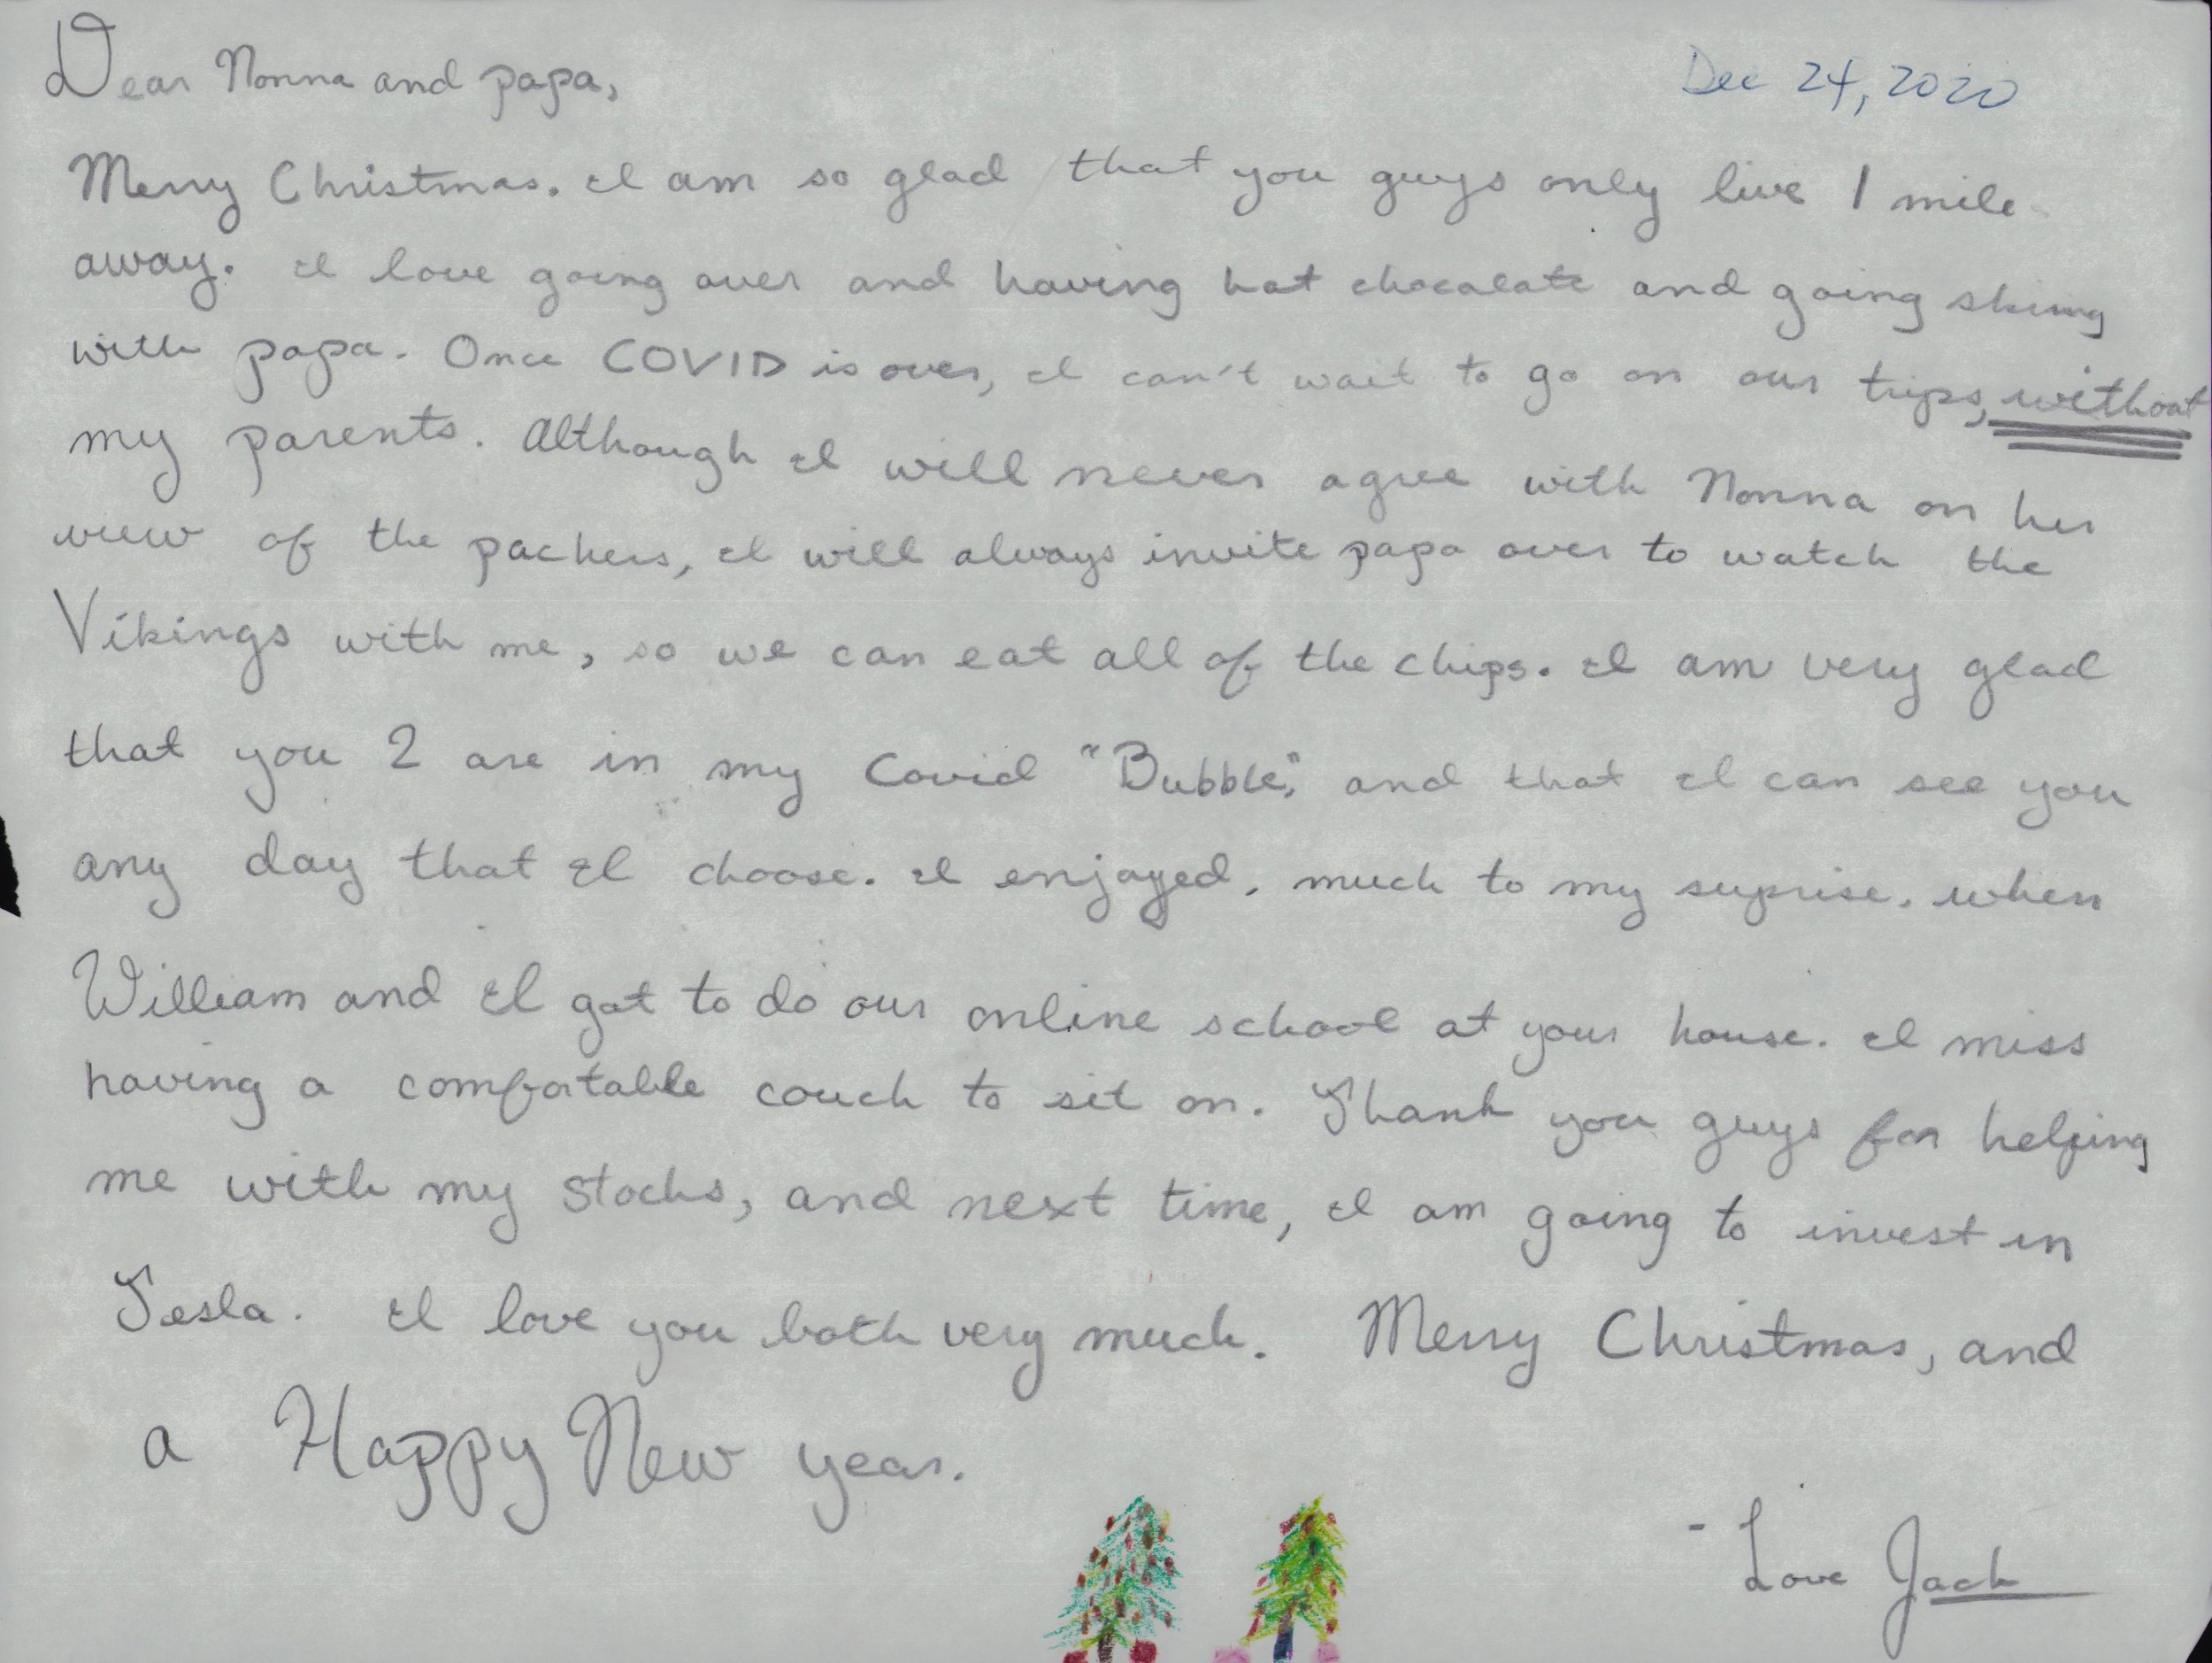 Dear Nonna and papa,
Dec 24, 2020
Merry Christmas. I am so glad that you guys only live 1 mile
away. I love going over and having hot chocolate and going skiing
with papa. Once COVID is over, I can't wait to go on our trips, without
my parents. Although I will never agree with Nonna on her
view of the packers, I will always invite papa over to watch the
Vikings with me, so we can eat all of the chips. I am very glad
that you 2 are in my Covid "Bubble," and that I can see you
any day that I choose. I enjoyed, much to my suprise, when
William and I got to do our online school at your house. I miss
having a comfortable couch to sit on. Thank you guys for helping
me with my stocks, and next time, I am going to invest in
Tesla. I love you both very much. Merry Christmas, and
a Happy New year.
- Love Jack